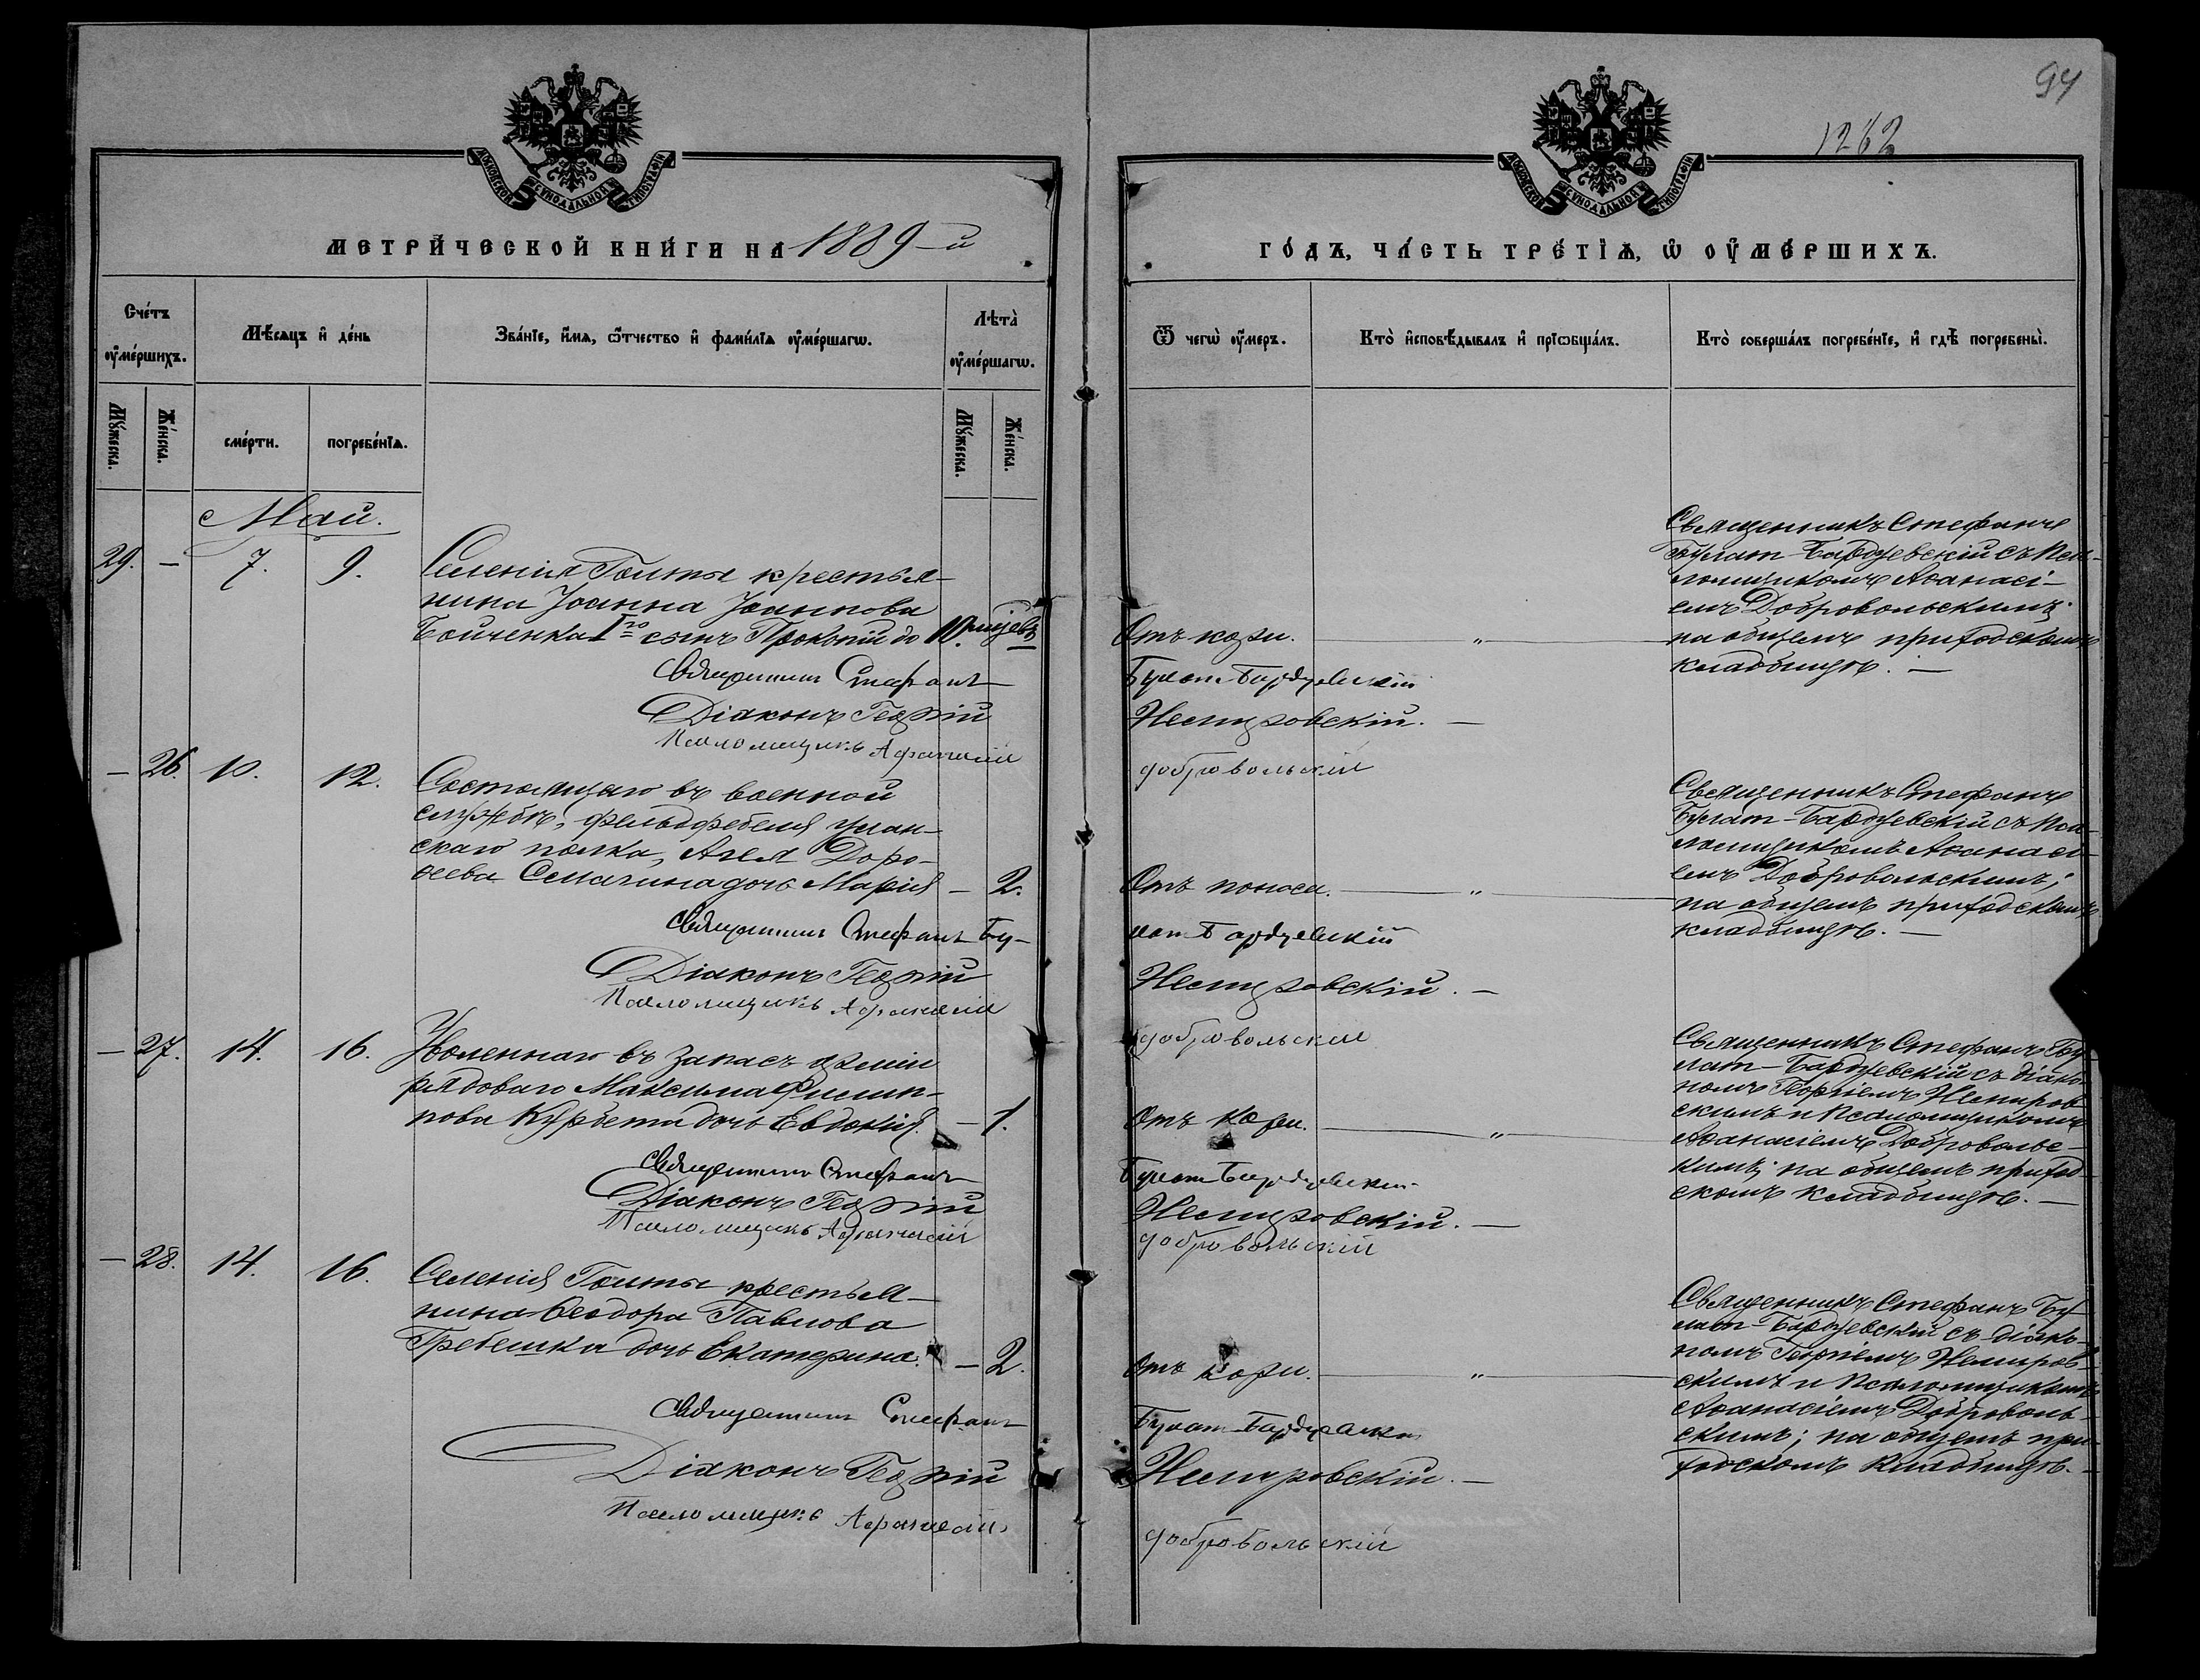 94
1262
МОСКОВСКОЙ СѴНОДАЛЬНОЙ ТИПОГРАФІИ
МОСКОВСКОЙ СѴНОДАЛЬНОЙ ТИПОГРАФІИ
МЕТРИ́ЧЕСКОЙ КНИ́ГИ НА 1889-й
ГО́ДЪ, ЧА́СТЬ ТРЕ́ТІѦ, Ѡ҆ ОУ҆МЕ́РШИХЪ.
Сче́тъ оу҆ме́ршихъ.
Мѣ́сяцъ и҆ де́нь
Зва́нїе, и҆́мѧ, ѻ҆́тчество и҆ фами́лїѧ оу҆ме́ршагѡ.
Лѣ́та оу҆ме́ршагѡ.
Ѿ чегѡ̀ оу҆́меръ.
Кто̀ и҆сповѣ́дывалъ и҆ прїѡбща́лъ.
Кто̀ соверша́лъ погребе́нїе, и҆ гдѣ̀ погребены̀.
Мꙋ́жеска.
Же́нска.
сме́рти.
погребе́нїѧ.
Мꙋ́жеска.
Же́нска.
Май.
29. — 7. 9.
Селенія Голты крестья-
нина Іоанна Іоаннова
Бойченка Iго сынъ Прокопій до 10. мѣс
Отъ кори. — „ —
Священникъ Стефанъ
Булат-Бардуевскій съ Пса-
ломщикомъ Аѳанасі-
емъ Добровольскимъ;
на общемъ приходскомъ
кладбищѣ. —
Священникъ Стефанъ Булат-Бардуевскій
Діаконъ Георгій Немировскій. —
Псаломщикъ Афанасій Добровольскій
— 26. 10. 12.
Состоящаго въ военной
службѣ, фельдфебеля улан-
скаго полка,
ѳеева дочь Марія — 2.
Отъ поноса. — „ —
Священникъ Стефанъ
Булат-Бардуевскій съ Пса-
ломщикомъ Аѳанасі-
емъ Добровольскимъ;
на общемъ приходскомъ
кладбищѣ. —
Священникъ Стефанъ Бу-
лат Бардуевскій
Діаконъ Георгій Немировскій. —
Псаломщикъ Афанасій Добровольскій
— 27. 14. 16.
Уволеннаго въ запасъ арміи
рядоваго Максима Филип-
пова Курбета дочь Евдокія. — 1.
Отъ кори. — „ —
Священникъ Стефанъ Бу-
лат-Бардуевскій съ діако-
номъ Георгіемъ Немиров-
скимъ и Псаломщикомъ
Аѳанасіемъ Доброволь-
скимъ; на общемъ приход-
скомъ кладбищѣ. —
Священникъ Стефанъ Булат Бардуевскій
Діаконъ Георгій Немировскій. —
Псаломщикъ Афанасій Добровольскій
— 28. 14. 16.
Селенія Голты крестья-
нина Ѳеодора Павлова
Гребешка дочь Екатерина. — 2.
Отъ кори. — „ —
Священникъ Стефанъ Бу-
лат-Бардуевскій съ діако-
номъ Георгіемъ Немиров-
скимъ и Псаломщикомъ
Аѳанасіемъ Доброволь-
скимъ; на общемъ при-
ходскомъ кладбищѣ. —
Священникъ Стефанъ Булат-Бардуевскій
Діаконъ Георгій Немировскій. —
Псаломщикъ Афанасій Добровольскій